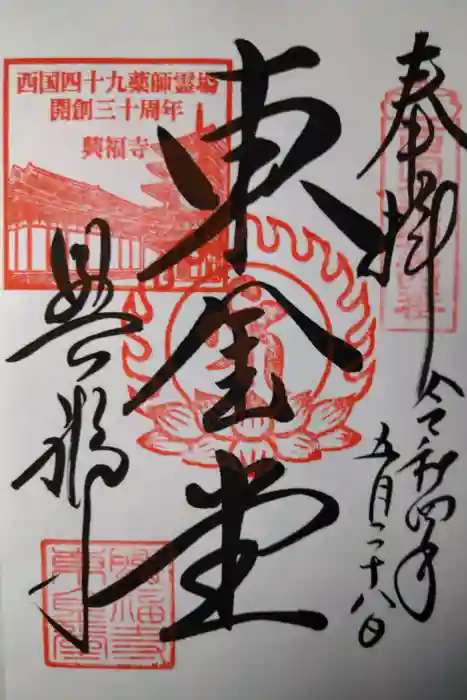 奉拝
令和四年
五月二十八日
東金堂
興福寺
西国四十九薬師霊場
開創三十周年
興福寺